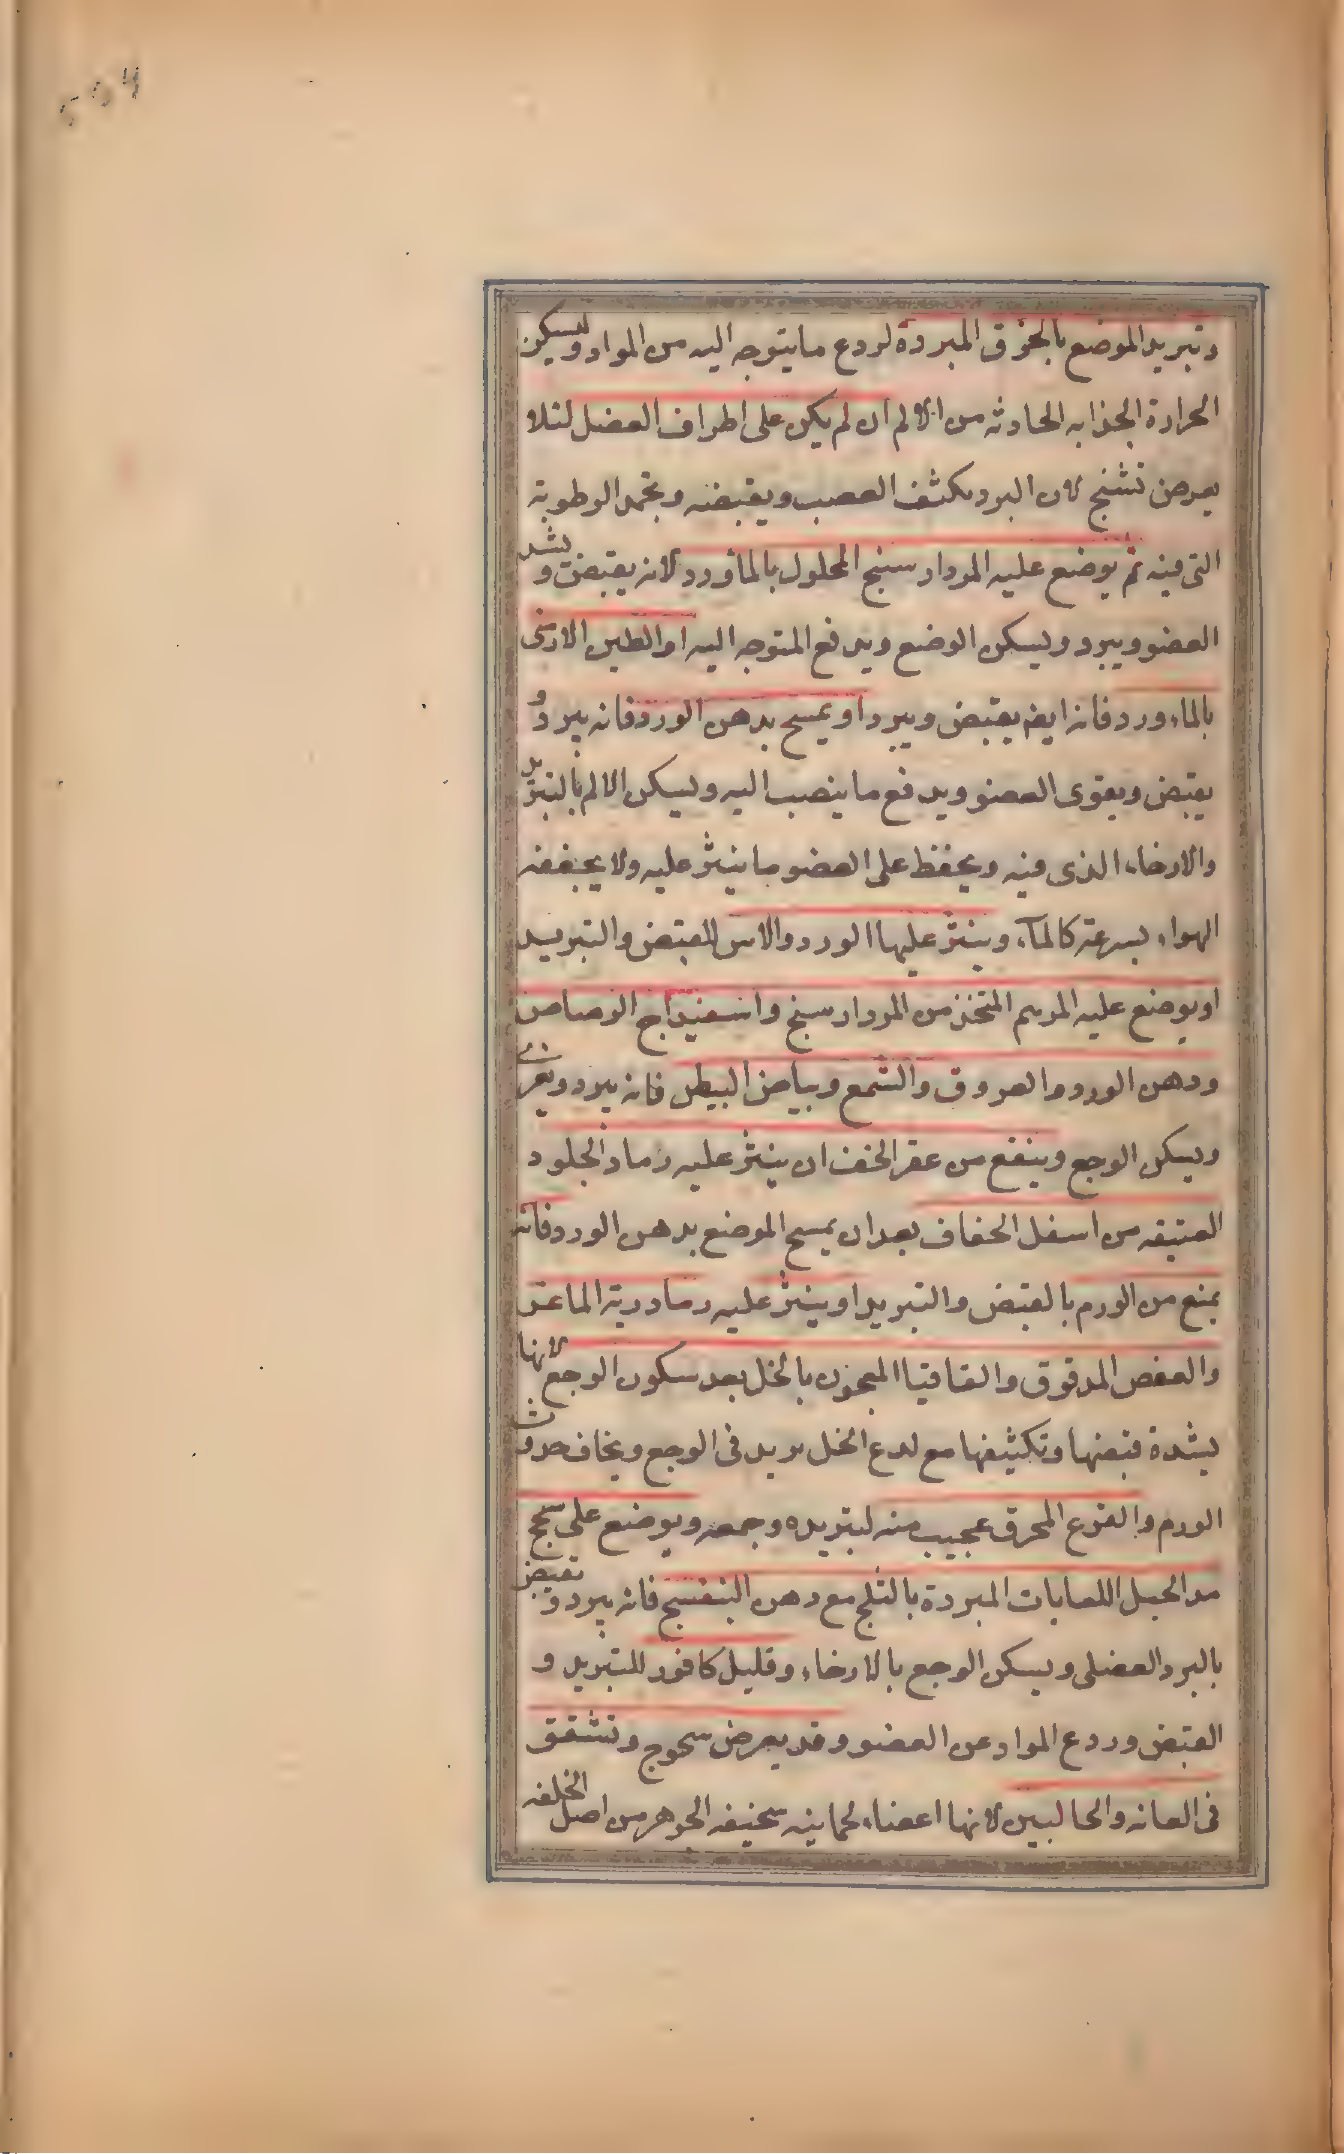 504
وتبريد الموضع بالخرق المبردة لردع ما يتوجه اليه من المواد وليسكن
الحرارة الجذابه الحادثه من الالم ان لم يكن على اطراف العضل لئلا
يعرض تشنج لان البرد يكثف العصب ويقبضه ويجمد الرطوبة
التى فيه ثم يوضع عليه المردارسنج المحلول بالماورد لانه يقبض و يشد
العضو ويبرد ويسكن الوضع ويدفع المتوجه اليه او الطين الارمنى
بالماء ورد فانه ايض يقبض ويبرد او يمسح بدهن الورد فانه يبرد و
يقبض ويقوى العضو ويدفع ما ينصب اليه ويسكن الالم بالتبريد
والارخاء الذى فيه ويحفظ على العضو ما ينثر عليه ولا يجففه
الهواء بسرعة كالمآء وينثر عليها الورد والاس للقبض والتبريد
او يوضع عليه المرهم المتخذ من المردارسنج واسفيداج الرصاص
ودهن الورد والعروق والشمع وبياض البيض فانه يبرد ويغرى
ويسكن الوجع وينفع من عقر الخف ان ينثر عليه رماد الجلود
العتيقه من اسفل الخفاف بعد ان يمسح الموضع بدهن الورد فانه
يمنع من الورم بالقبض والتبريد او ينثر عليه رماد رية الماعز
والعفص المدقوق والقاقيا المعجون بالخل بعد سكون الوجع لانها
بشدة قبضها وتكثيفها مع لدع الخل يزيد فى الوجع ويخاف حدوث
الورم والقرع المحرق عجيب منه لتبريده وجمعه ويوضع على سحج
مد الحبل اللعابات المبردة بالثلج مع دهن البنفسج فانه يبرد و يقبض
بالبرد العضلى ويسكن الوجع بالارخاء وقليل كافور للتبريد و
القبض وردع المواد عن العضو وقد يعرض سحوج وتشقق
فى العانه والحالبين لانها اعضاء لحمانيه سخيفه الجوهر من اصل الخلقه